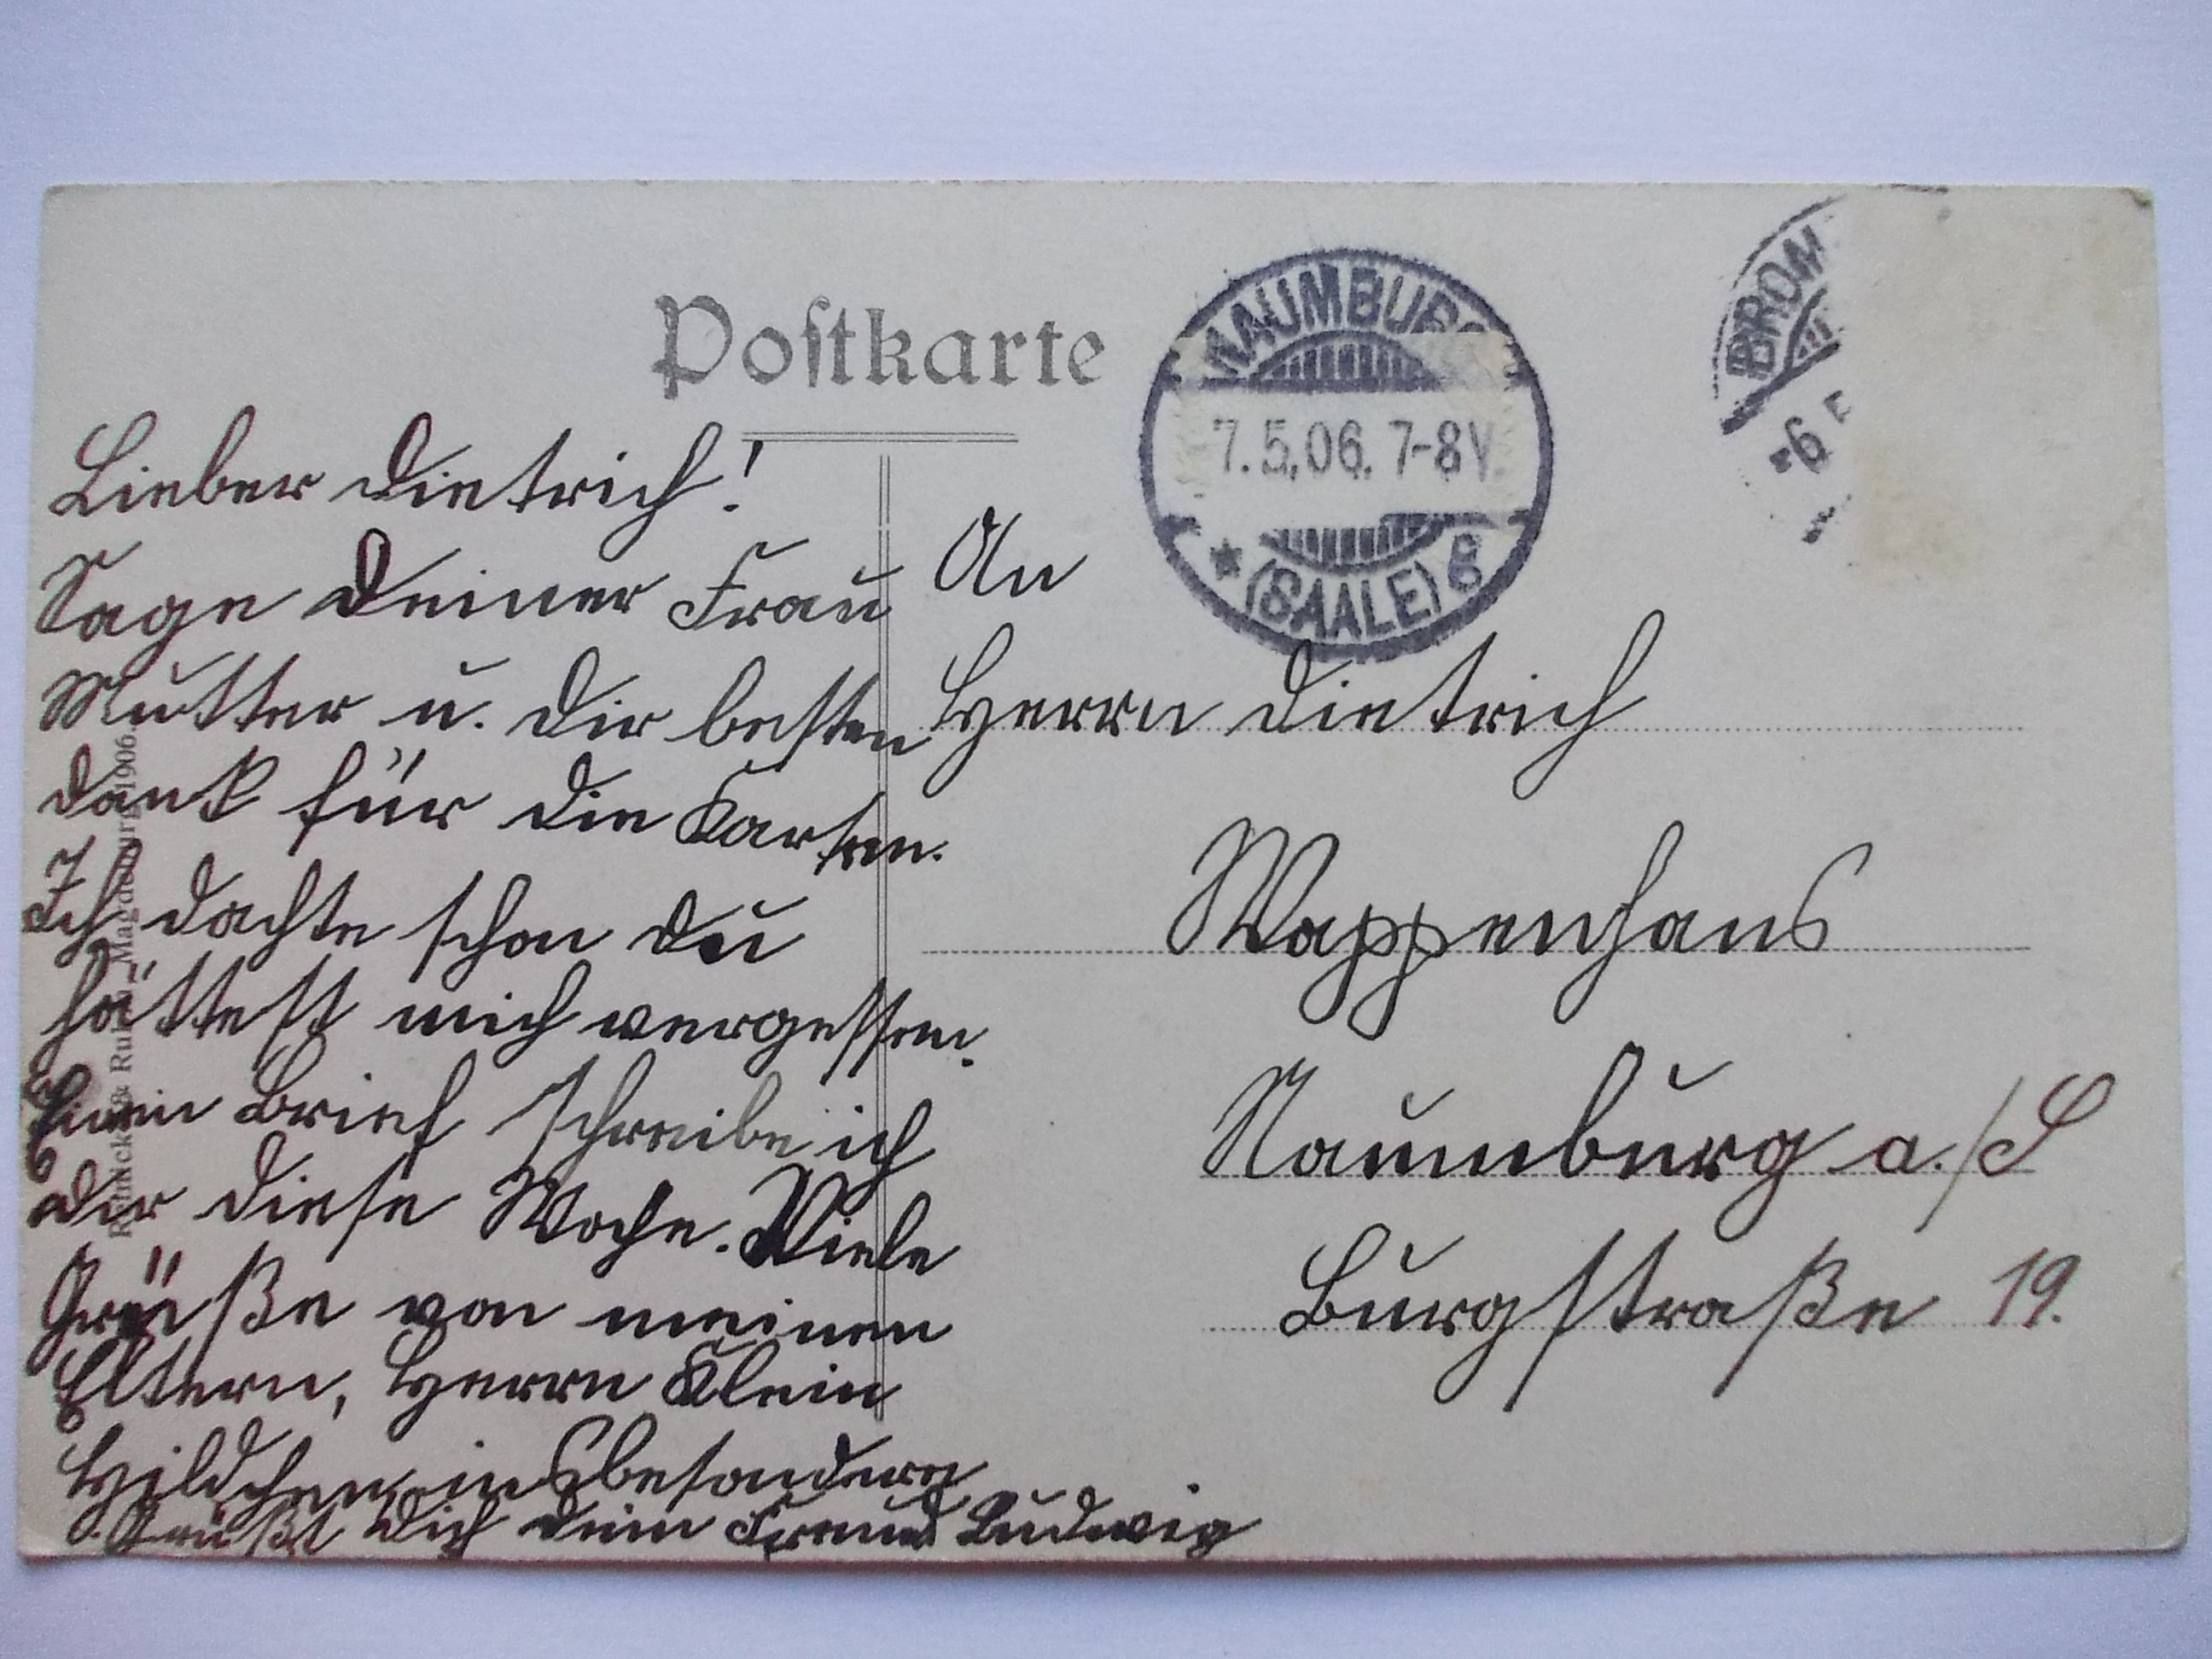 Postkarte
NAUMBURG
7.5.06. 7-8V.
* (SAALE) 8
BROM
-6 5
Lieber Dietrich!
Sage Deiner Frau
Mutter u. Dir besten
Dank für die Karten.
Ich dachte schon Du
hättest mich vergessen.
Einen Brief schreibe ich
Dir diese Woche. Viele
Grüße von meinen
Eltern, Herrn Klein
Hildchen insbesondere
Grüßt Dich Dein Freund Ludwig
An
Herrn Dietrich
Wappenhans
Naumburg a./S
Burgstraße 19.
Magdeburg 1906.